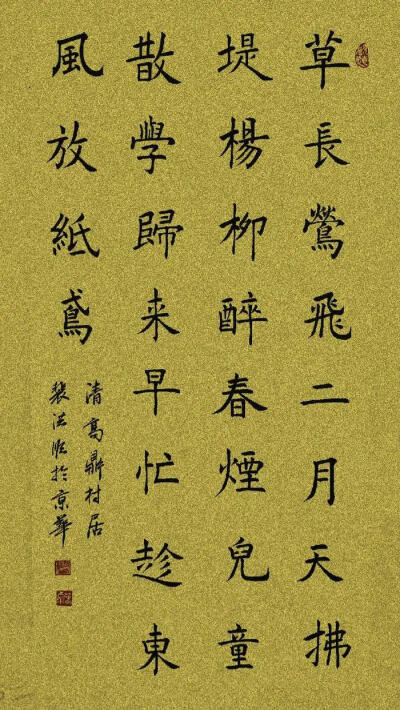 草長鶯飛二月天拂
堤楊柳醉春煙兒童
散學歸来早忙趁東
風放紙鳶
清高鼎村居
裴洪於京華